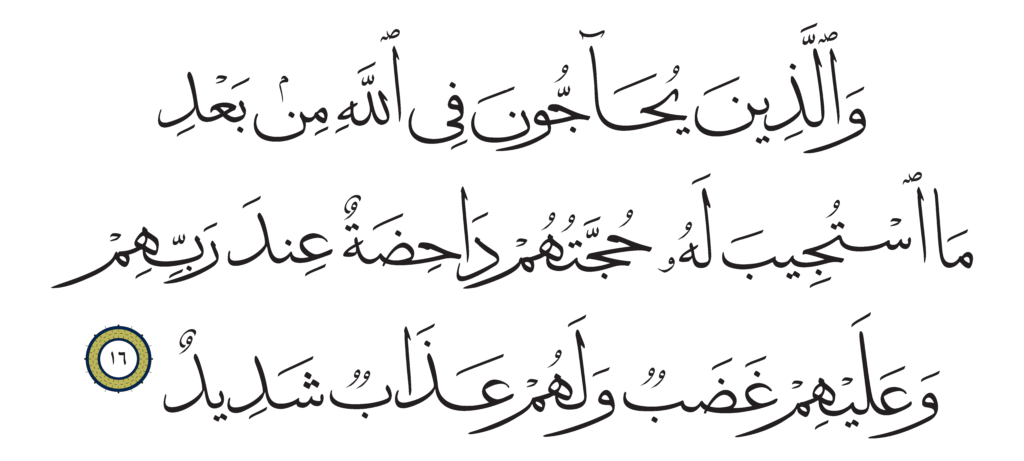 وَٱلَّذِينَ يُحَآجُّونَ فِى ٱللَّهِ مِنۢ بَعْدِ
مَا ٱسْتُجِيبَ لَهُۥ حُجَّتُهُمْ دَاحِضَةٌ عِندَ رَبِّهِمْ
وَعَلَيْهِمْ غَضَبٌ وَلَهُمْ عَذَابٌ شَدِيدٌ ١٦